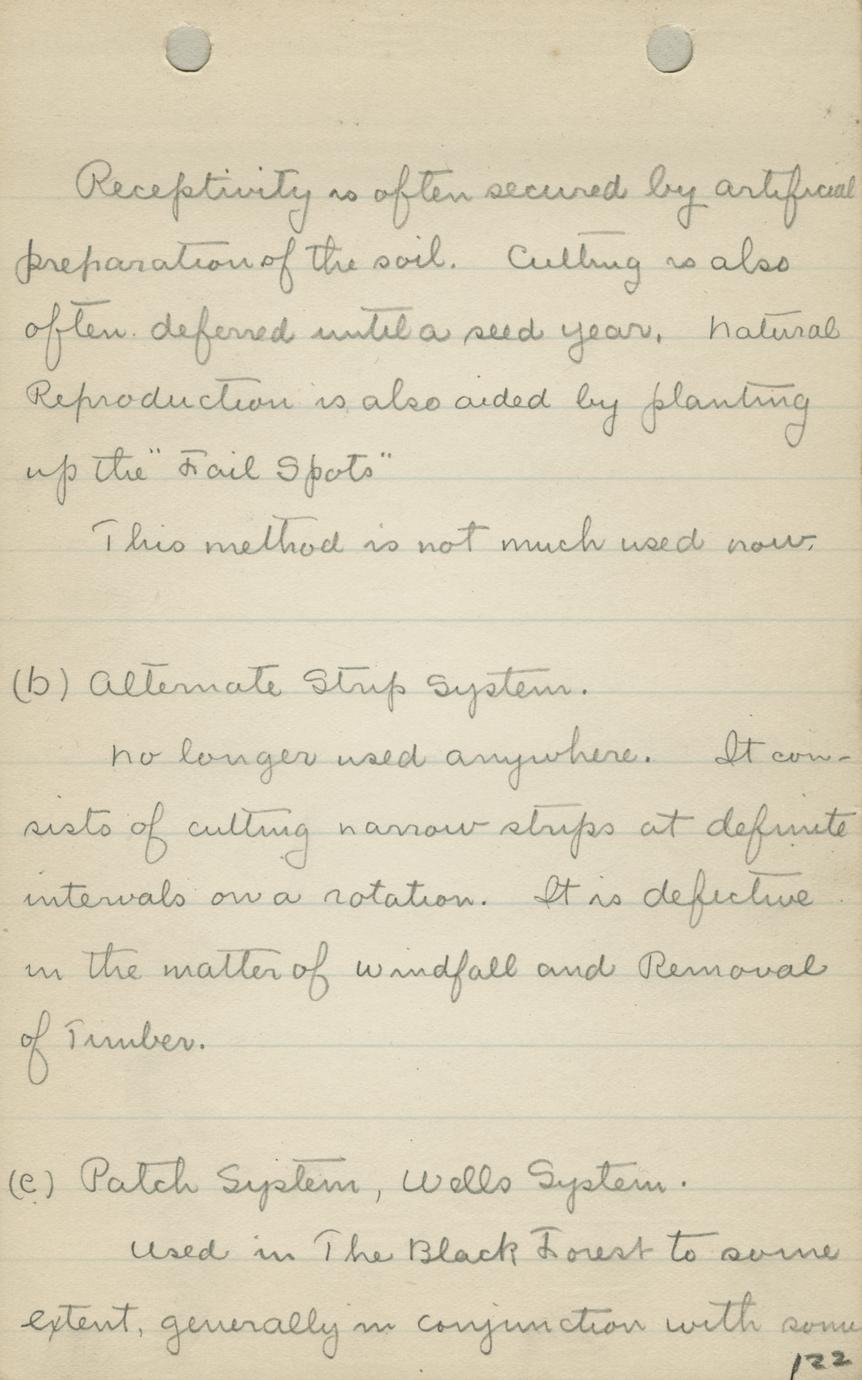 Receptivity is often secured by artificial
preparation of the soil. Cutting is also
often deferred until a seed year. Natural
Reproduction is also aided by planting
up the "Fail Spots"
This method is not much used now.
(b) Alternate Strip System.
No longer used anywhere. It con-
sists of cutting narrow strips at definite
intervals on a rotation. It is defective
in the matter of windfall and Removal
of Timber.
(c) Patch System, Wells System.
Used in The Black Forest to some
extent, generally in conjunction with some
122